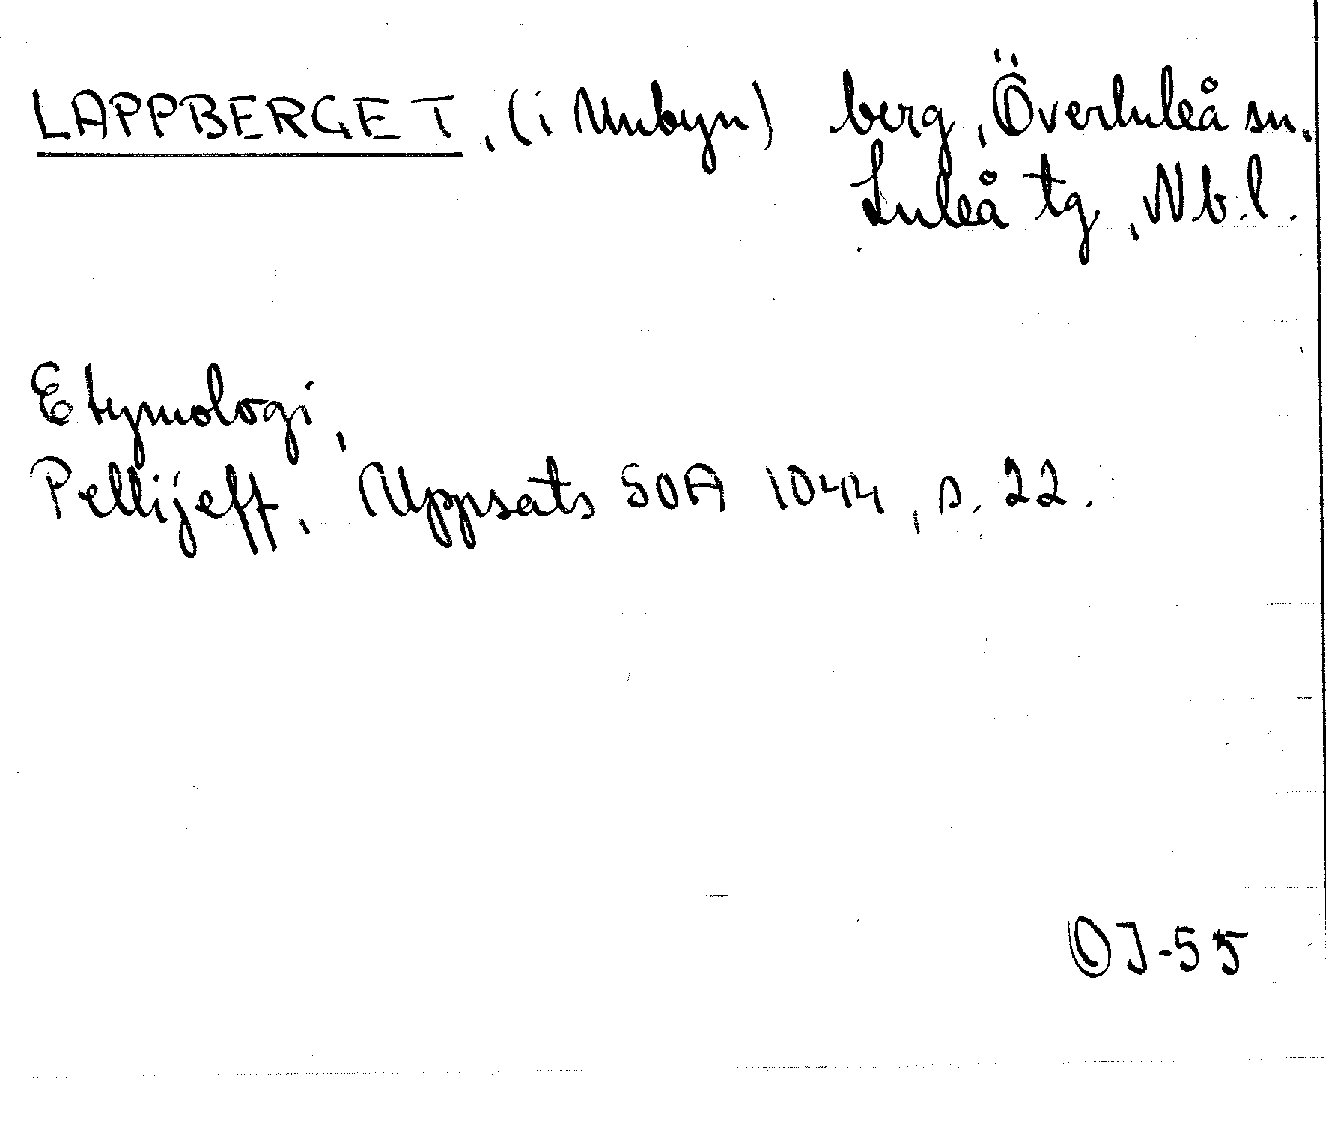 LAPPBERGET, (i Unbyn) berg, Överluleå sn.
Luleå tg, Nb.l.
Etymologi,
Pellijeff, Uppsats SOA 1044, s. 22.
OJ-55